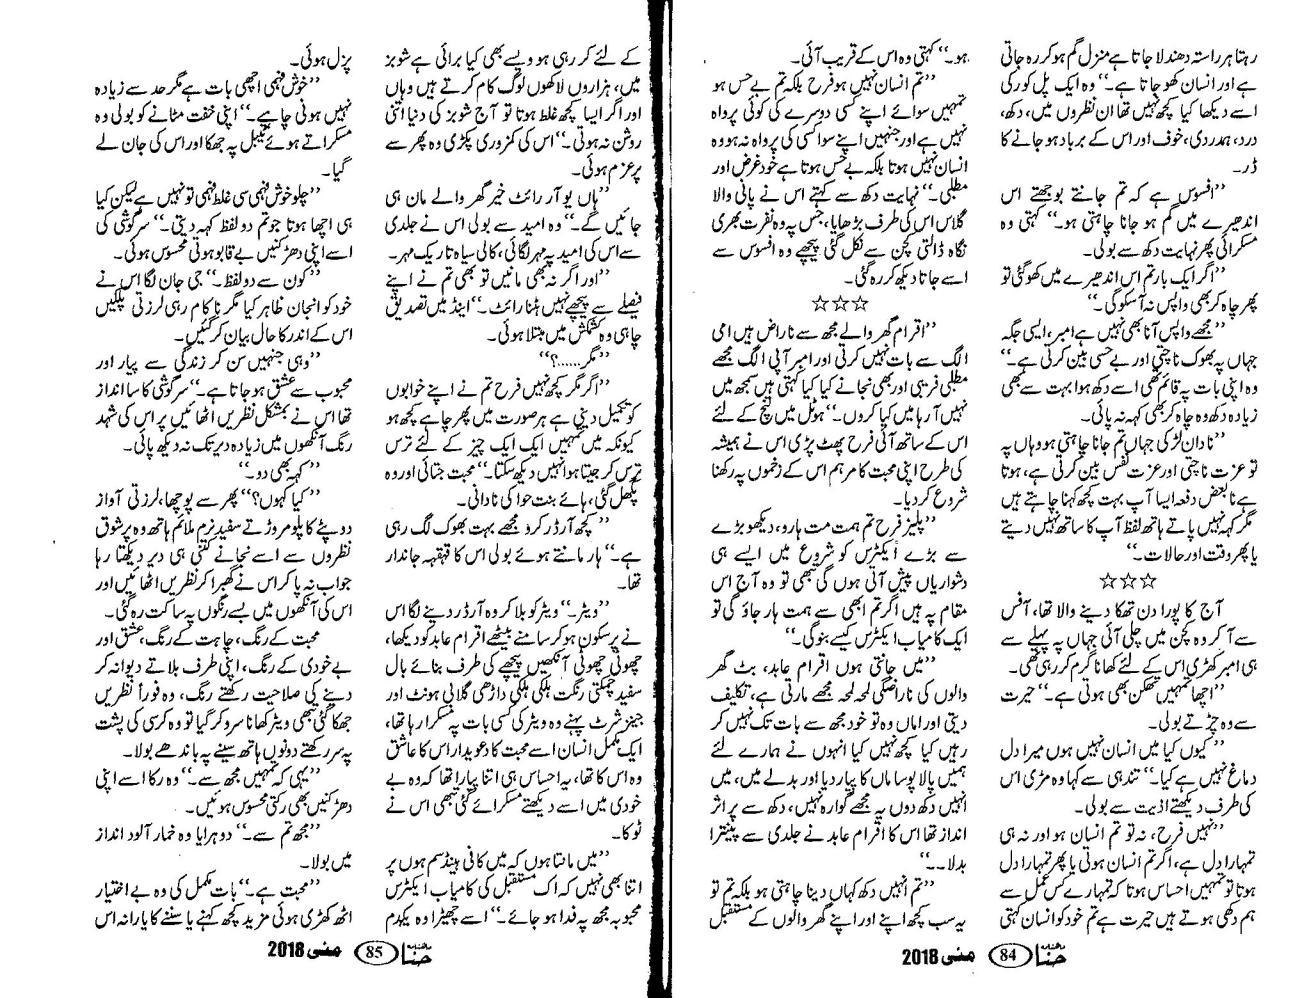 رہتا ہر راستہ دھندلا جاتا ہے منزل گم ہو کر رہ جاتی
ہے اور انسان کھو جاتا ہے۔‘‘ وہ ایک پل کو رکی
اسے دیکھا کیا کچھ نہیں تھا ان نظروں میں، دکھ،
درد، ہمدردی، خوف اور اس کے برباد ہو جانے کا
ڈر۔
’’افسوس ہے کہ تم جانتے بوجھتے اس
اندھیرے میں گم ہو جانا چاہتی ہو۔‘‘ کہتی وہ
مسکرائی پھر نہایت دکھ سے بولی۔
’’اگر ایک بار تم اس اندھیرے میں کھو گئی تو
پھر چاہ کر بھی واپس نہ آ سکو گی۔‘‘
’’مجھے واپس آنا بھی نہیں ہے امبر، ایسی جگہ
جہاں پہ بھوک ناچتی اور بے حسی بین کرتی ہے۔‘‘
وہ اپنی بات پہ قائم تھی اسے دکھ ہوا بہت سے بھی
زیادہ دکھ وہ چاہ کر بھی کہہ نہ پائی۔
’’نادان لڑکی جہاں تم جانا چاہتی ہو وہاں پہ
تو عزت ناچتی اور عزت نفس بین کرتی ہے، ہوتا
ہے نا بعض دفعہ ایسا آپ بہت کچھ کہنا چاہتے ہیں
مگر کہہ نہیں پاتے ہاتھ لفظ آپ کا ساتھ نہیں دیتے
یا پھر وقت اور حالات۔‘‘
☆☆☆
آج کا پورا دن تھکا دینے والا تھا، آفس
سے آ کر وہ کچن میں چلی آئی جہاں پہ پہلے سے
ہی امبر کھڑی اس کے لئے کھانا گرم کر رہی تھی۔
’’اچھا تمہیں تھکن بھی ہوتی ہے۔‘‘ حیرت
سے وہ چڑتے بولی۔
’’کیوں کیا میں انسان نہیں ہوں میرا دل
دماغ نہیں ہے کیا۔‘‘ تندہی سے کہا وہ مڑی اس
کی طرف دیکھتے اذیت سے بولی۔
’’نہیں فرح، نہ تو تم انسان ہو اور نہ ہی
تمہارا دل ہے، اگر تم انسان ہوتی یا پھر تمہارا دل
ہوتا تو تمہیں احساس ہوتا کہ تمہارے کس عمل سے
ہم دکھی ہوتے ہیں حیرت ہے تم خود کو انسان کہتی
ہو۔‘‘ کہتی وہ اس کے قریب آئی۔
’’تم انسان نہیں ہو فرح بلکہ تم بے حس ہو
تمہیں سوائے اپنے کسی دوسرے کی کوئی پرواہ
نہیں ہے اور جنہیں اپنے سوا کسی کی پرواہ نہ ہو وہ
انسان نہیں ہوتا بلکہ بے حس ہوتا ہے خود غرض اور
مطلبی۔‘‘ نہایت دکھ سے کہتے اس نے پانی والا
گلاس اس کی طرف بڑھایا، جس پہ وہ نفرت بھری
نگاہ ڈالتی کچن سے نکل گئی پیچھے وہ افسوس سے
اسے جاتا دیکھ کر رہ گئی۔
☆☆☆
’’اقرام گھر والے مجھ سے ناراض ہیں امی
الگ سے بات نہیں کرتی اور امبر آپی الگ مجھے
مطلبی فریبی اور بھی نجانے کیا کیا کہتی ہیں سمجھ میں
نہیں آ رہا میں کیا کروں۔‘‘ ہوٹل میں لنچ کے لئے
اس کے ساتھ آئی فرح پھٹ پڑی اس نے ہمیشہ
کی طرح اپنی محبت کا مرہم اس کے زخموں پہ رکھنا
شروع کر دیا۔
’’پلیز فرح تم ہمت مت ہارو، دیکھو بڑے
سے بڑے ایکٹرس کو شروع میں ایسے ہی
دشواریاں پیش آتی ہوں گی تبھی تو وہ آج اس
مقام پہ ہیں اگر تم ابھی سے ہمت ہار جاؤ گی تو
ایک کامیاب ایکٹرس کیسے بنو گی۔‘‘
’’میں جانتی ہوں اقرام عابد، بٹ گھر
والوں کی ناراضگی لمحہ لمحہ مجھے مارتی ہے، تکلیف
دیتی اور اماں وہ تو خود مجھ سے بات تک نہیں کر
رہیں کیا کچھ نہیں کیا انہوں نے ہمارے لئے
ہمیں پالا پوسا ماں کا پیار دیا اور بدلے میں، میں
انہیں دکھ دوں یہ مجھے گوارہ نہیں، دکھ سے پر اثر
انداز تھا اس کا اقرام عابد نے جلدی سے پینترا
بدلا۔۔‘‘
’’تم انہیں دکھ کہاں دینا چاہتی ہو بلکہ تم تو
یہ سب کچھ اپنے اور اپنے گھر والوں کے مستقبل
ماہنامہ حنا 84 مئی 2018
کے لئے کر رہی ہو ویسے بھی کیا برائی ہے شوبز
میں، ہزاروں لاکھوں لوگ کام کرتے ہیں وہاں
اور اگر ایسا کچھ غلط ہوتا تو آج شوبز کی دنیا اتنی
روشن نہ ہوتی۔‘‘ اس کی کمزوری پکڑی وہ پھر سے
پر عزم ہوئی۔
’’ہاں یو آر رائٹ خیر گھر والے مان ہی
جائیں گے۔‘‘ وہ امید سے بولی اس نے جلدی
سے اس کی امید پہ مہر لگائی، کالی سیاہ تاریک مہر۔
’’اور اگر نہ بھی مانیں تو بھی تم نے اپنے
فیصلے سے پیچھے نہیں ہٹنا رائٹ۔‘‘ اینڈ میں تصدیق
چاہی وہ کشمکش میں مبتلا ہوئی۔
’’مگر......؟‘‘
’’اگر مگر کچھ نہیں فرح تم نے اپنے خوابوں
کو تکمیل دینی ہے ہر صورت میں پھر چاہے کچھ ہو
کیونکہ میں تمہیں ایک ایک چیز کے لئے ترس
ترس کر جیتا ہوا نہیں دیکھ سکتا۔‘‘ محبت جتائی اور وہ
پگھل گئی، ہائے بنت حوا کی نادانی۔
’’کچھ آرڈر کرو مجھے بہت بھوک لگ رہی
ہے۔‘‘ ہار مانتے ہوئے بولی اس کا قہقہہ جاندار
تھا۔
’’ویٹر۔‘‘ ویٹر کو بلا کر وہ آرڈر دینے لگا اس
نے پرسکون ہو کر سامنے بیٹھے اقرام عابد کو دیکھا،
چھوٹی چھوٹی آنکھیں پیچھے کی طرف بنائے بال
سفید چمکتی رنگت ہلکی ہلکی داڑھی گلابی ہونٹ اور
جینز شرٹ پہنے وہ ویٹر کی کسی بات پہ مسکرا رہا تھا،
ایک مکمل انسان اسے محبت کا دعویدار اس کا عاشق
وہ اس کا تھا، یہ احساس ہی اتنا پیارا تھا کہ وہ بے
خودی میں اسے دیکھتے مسکرائے گئی تبھی اس نے
ٹوکا۔
’’میں مانتا ہوں کہ میں کافی ہینڈسم ہوں پر
اتنا بھی نہیں کہ اک مستقبل کی کامیاب ایکٹرس
محبوبہ مجھ پہ فدا ہو جائے۔‘‘ اسے چھیڑا وہ یکدم
پزل ہوئی۔
’’خوش فہمی اچھی بات ہے مگر حد سے زیادہ
نہیں ہونی چاہیے۔‘‘ اپنی خفت مٹانے کو بولی وہ
مسکراتے ہوئے ٹیبل پہ جھکا اور اس کی جان لے
گیا۔
’’چلو خوش فہمی سی غلط فہمی تو نہیں ہے لیکن کیا
ہی اچھا ہوتا جو تم دو لفظ کہہ دیتی۔‘‘ سرگوشی کی
اسے اپنی دھڑکنیں بے قابو ہوتی محسوس ہوئی۔
’’کون سے دو لفظ۔‘‘ جی جان لگا اس نے
خود کو انجان ظاہر کیا مگر ناکام رہی لرزتی پلکیں
اس کے اندر کا حال بیان کر گئیں۔
’’وہی جنہیں سن کر زندگی سے پیار اور
محبوب سے عشق ہو جاتا ہے۔‘‘ سرگوشی کا سا انداز
تھا اس نے بمشکل نظریں اٹھائیں پر اس کی شہد
رنگ آنکھوں میں زیادہ دیر تک نہ دیکھ پائی۔
’’کہہ بھی دو۔‘‘
’’کیا کہوں؟‘‘ پھر سے پوچھا، لرزتی آواز
دوپٹے کا پلو مروڑتے سفید نرم ملائم ہاتھ وہ پر شوق
نظروں سے اسے نجانے کتنی ہی دیر دیکھتا رہا
جواب نہ پا کر اس نے گھبرا کر نظریں اٹھائیں اور
اس کی آنکھوں میں بسے رنگوں پہ ساکت رہ گئی۔
محبت کے رنگ، چاہت کے رنگ، عشق اور
بے خودی کے رنگ، اپنی طرف بلاتے دیوانہ کر
دینے کی صلاحیت رکھتے رنگ، وہ فوراً نظریں
جھکا گئی تبھی ویٹر کھانا سرو کر گیا تو وہ کرسی کی پشت
پہ سر رکھتے دونوں ہاتھ سینے پہ باندھے بولا۔
’’یہی کہ تمہیں مجھ سے۔‘‘ وہ رکا اسے اپنی
دھڑکنیں بھی رکتی محسوس ہوئیں۔
’’مجھ تم سے۔‘‘ دوہرایا وہ خمار آلود انداز
میں بولا۔
’’محبت ہے۔‘‘ بات مکمل کی وہ بے اختیار
اٹھ کھڑی ہوئی مزید کچھ کہنے یا سننے کا یارا نہ اس
ماہنامہ حنا 85 مئی 2018